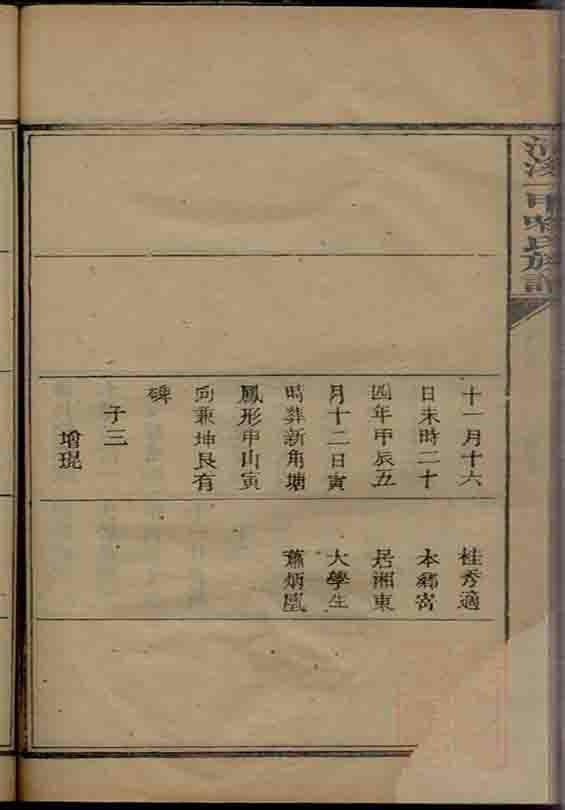 族譜
十一月十六
日未時二十
四年甲辰五
月十二日寅
時葬新角塘
鳳形申山寅
向兼坤艮有
碑
子三
增琨
桂秀適
本鄉寄
居湘東
大學生
蕭炳凰